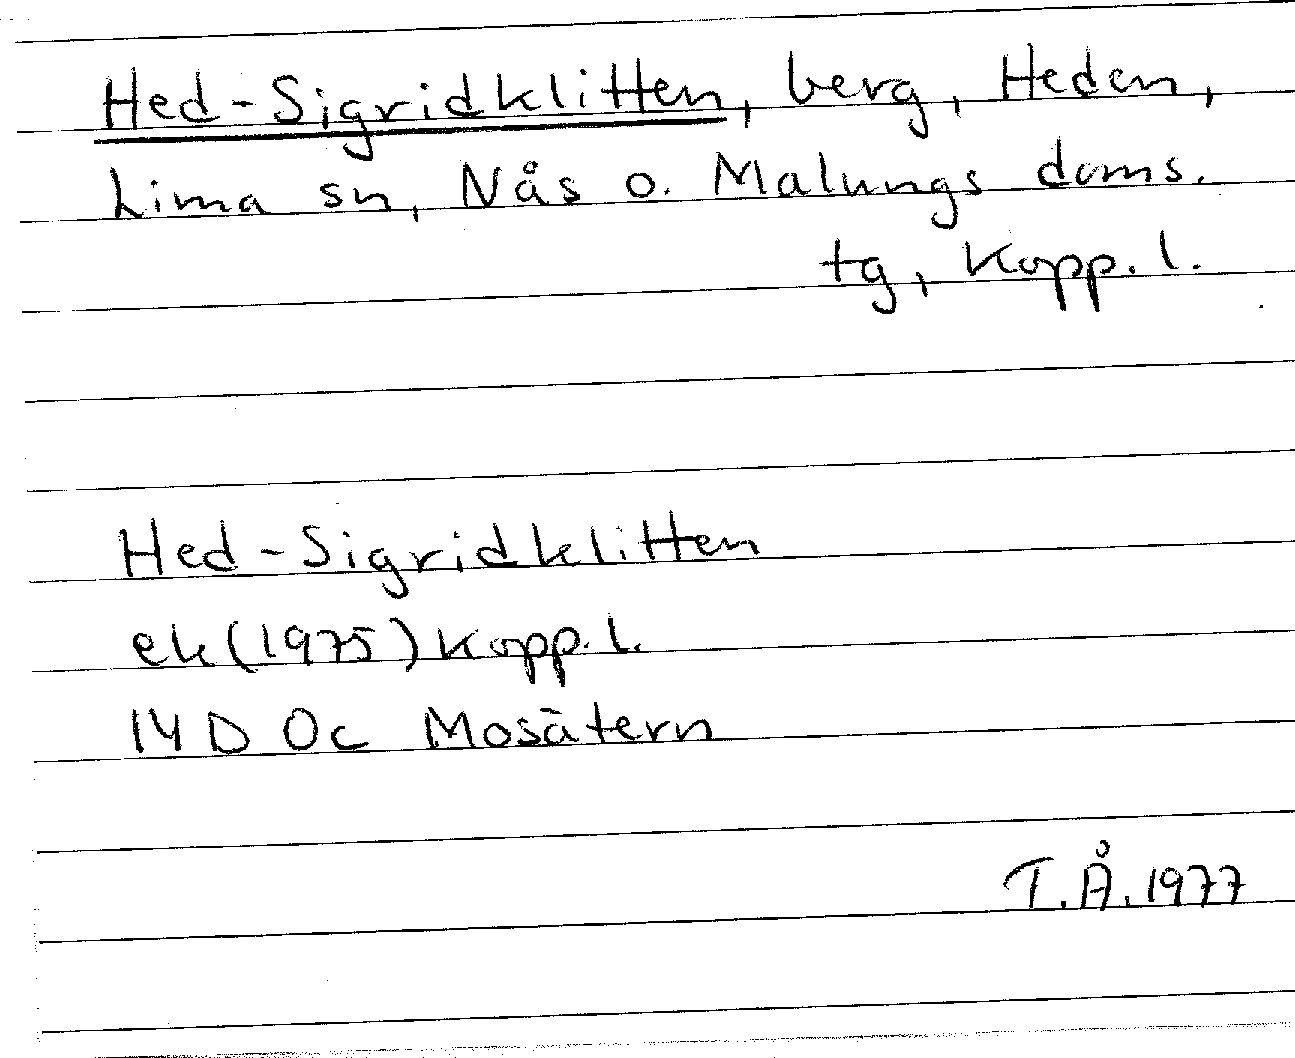 Hed-Sigridklitten, berg, Heden,
Lima sn, Nås o. Malungs doms.
tg, Kopp. l.
Hed-Sigridklitten
ek (1975) Kopp. l.
14 D 0c Mosätern
T.Å. 1977